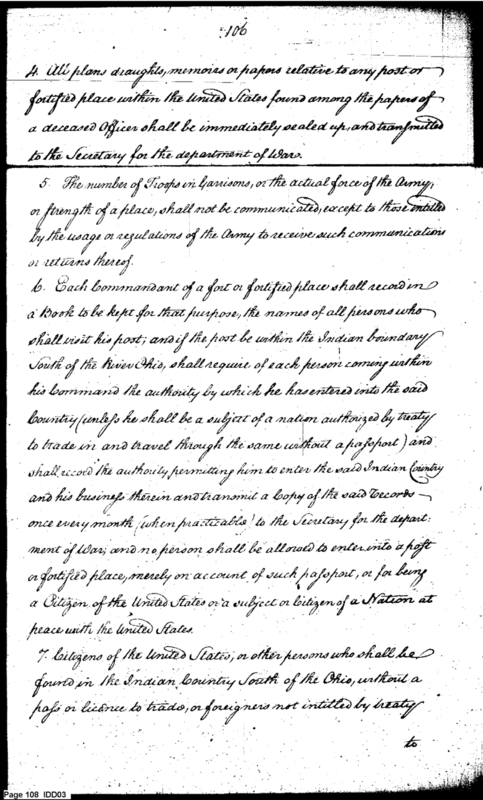 106
4. All plans draughts, memoires or papers relative to any post or
fortified place within the United States found among the papers of
a deceased Officer shall be immediately sealed up, and transmitted
to the Secretary for the department of War.
5. The number of Troops in Garrisons, or the actual force of the Army,
or strength of a place, shall not be communicated, except to those entitled
by the usage or regulations of the Army to receive such communications
or returns thereof.
6. Each Commandant of a fort or fortified place shall record in
a Book to be kept for that purpose, the names of all persons who
shall visit his post; and if the post be within the Indian boundary
South of the River Ohio, shall require of each person coming within
his Command the authority by which he has entered into the said
Country (unless he shall be a subject of a nation authorized by treaty
to trade in and travel through the same without a passport) and
shall record the authority permitting him to enter the said Indian Country
and his business therein and transmit a Copy of the said records
once every month (when practicable) to the Secretary for the depart:
ment of War; and no person shall be allowed to enter into a post
or fortified place, merely on account of such passport, or for being
a Citizen of the United States or a subject or Citizen of a Nation at
peace with the United States.
7. Citizens of the United States, or other persons who shall be
found in the Indian Country South of the Ohio, without a
pass or licence to trade, or foreigners not intitled by treaty
to
Page 108 IDD03